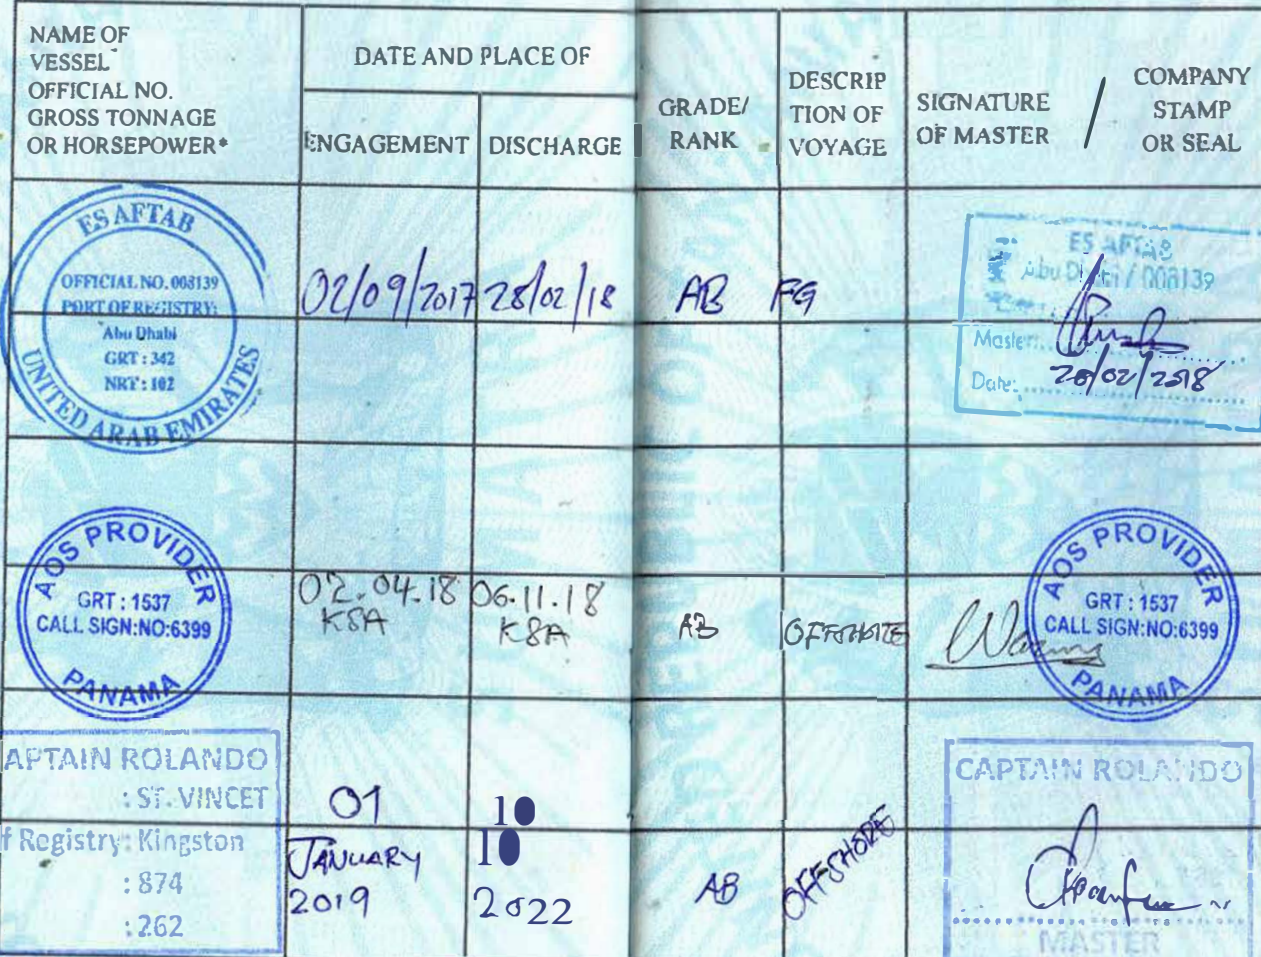 NAME OF
VESSEL
OFFICIAL NO.
GROSS TONNAGE
OR HORSEPOWER*
DATE AND PLACE OF
ENGAGEMENT
DISCHARGE
GRADE/
RANK
DESCRIP
TION OF
VOYAGE
SIGNATURE
OF MASTER
/
COMPANY
STAMP
OR SEAL
ES AFTAB
OFFICIAL NO. 008139
PORT OF REGISTRY:
Abu Dhabi
GRT : 342
NRT : 102
UNITED ARAB EMIRATES
02/09/2017
28/02/18
AB
FG
ES AFTAB
Abu Dhabi / 008139
Master:
Date: 28/02/2018
AOS PROVIDER
GRT : 1537
CALL SIGN:NO:6399
PANAMA
02.04.18
KSA
06.11.18
KSA
AB
OFFSHORE
AOS PROVIDER
GRT : 1537
CALL SIGN:NO:6399
PANAMA
APTAIN ROLANDO
: ST. VINCET
f Registry: Kingston
: 874
: 262
01
JANUARY
2019
10
10
2022
AB
OFFSHORE
CAPTAIN ROLANDO
MASTER